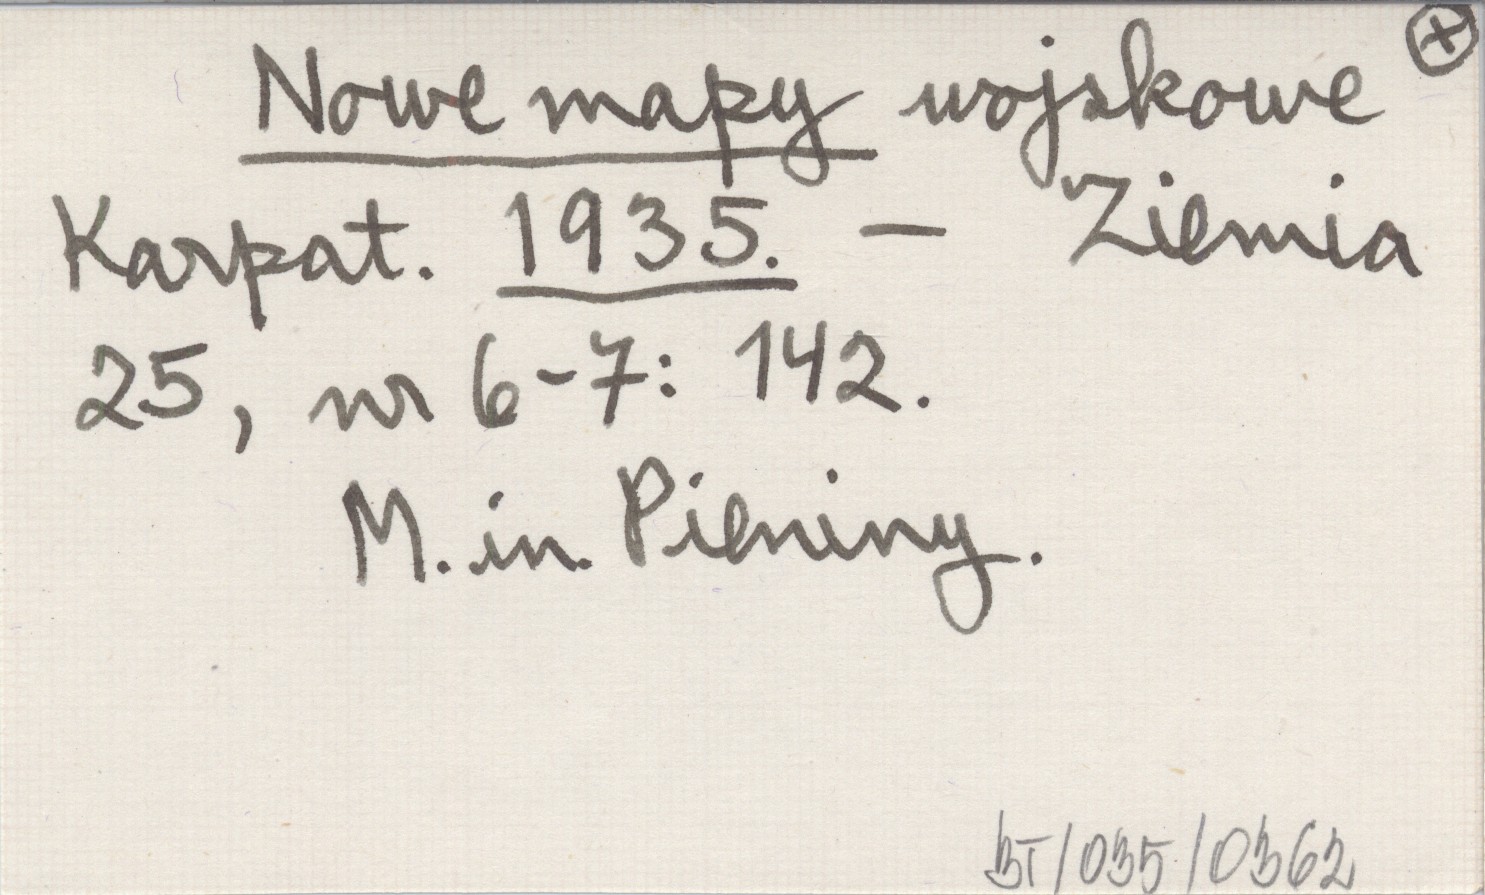 Nowe mapy wojskowe
Karpat. 1935. – Ziemia
25, nr 6-7: 142.
M. in. Pieniny.
BT/035/0362